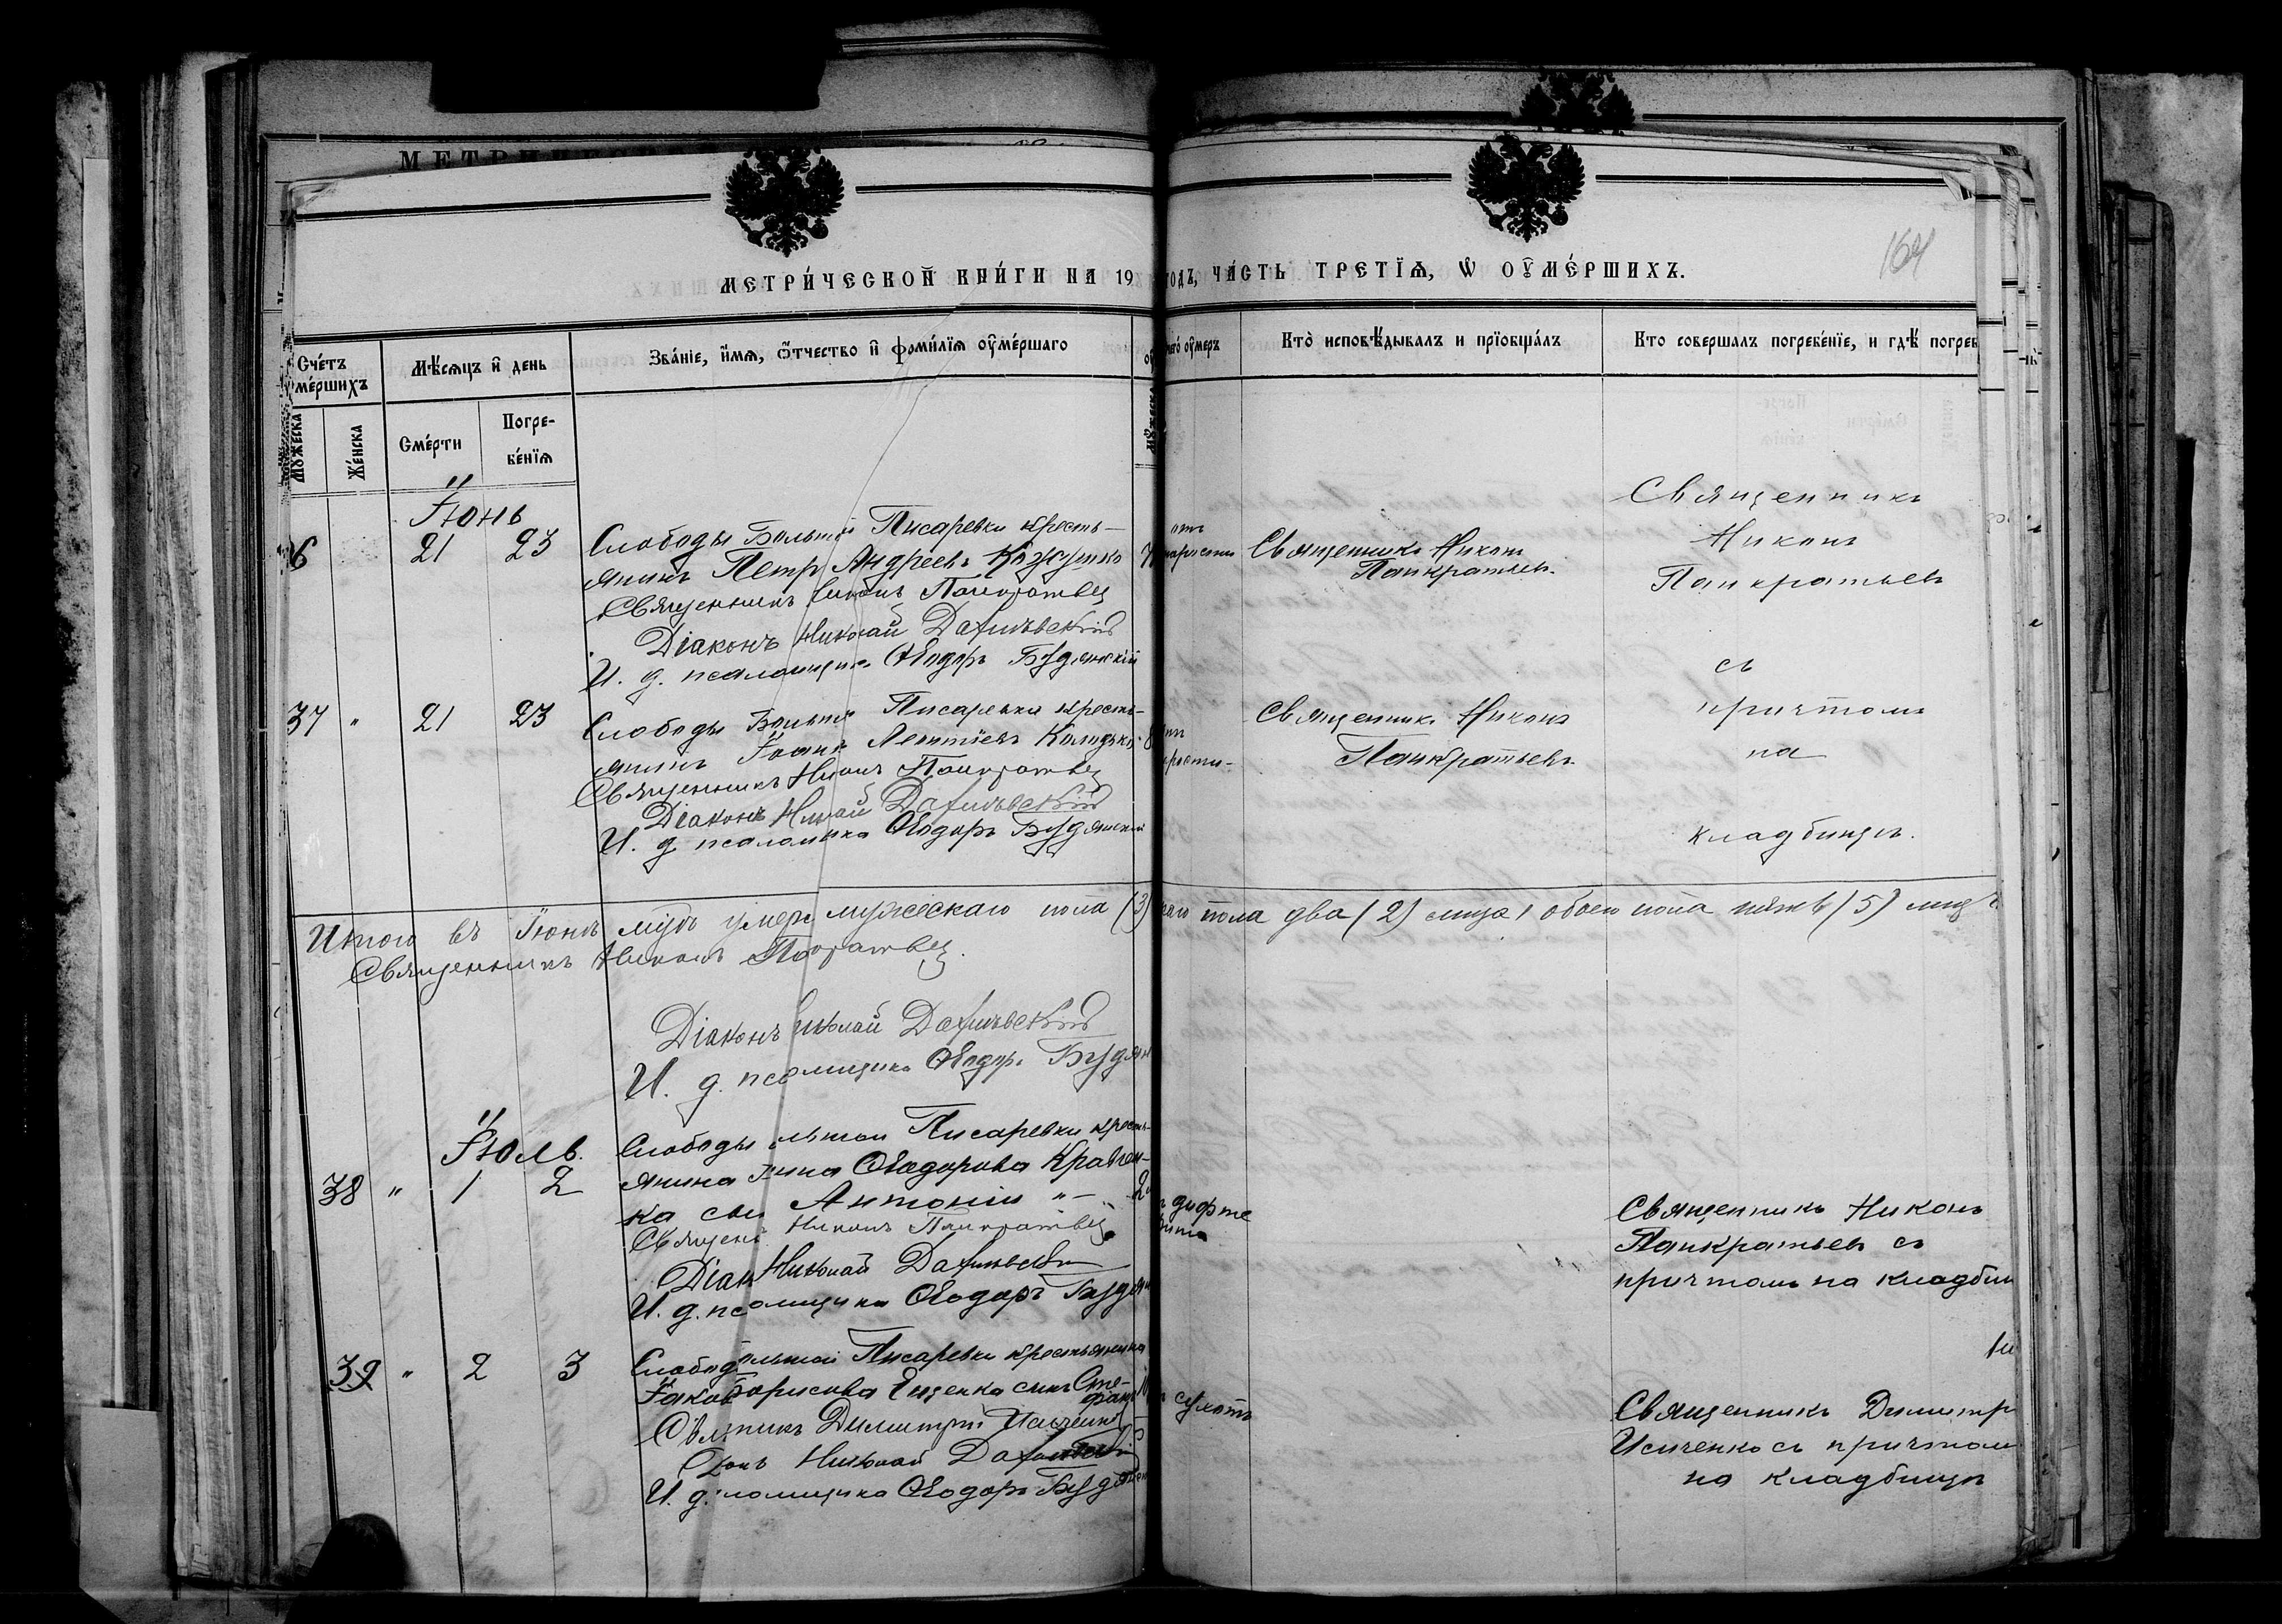 164
МЕТРИ́ЧЕСКОЙ КНИ́ГИ НА 19 ГОДЪ, ЧА́СТЬ ТРЕТЇѦ, Ѡ ОУ҆МЕ́РШИХЪ.
Сче́тъ ме́ршихъ
Мѣ́сяцъ и҆ день
Зва́нїе, и҆́мѧ, ѻ҆́тчество и҆ фами́лїѧ оу҆ме́ршаго
чего́ оу҆́меръ
Кто̀ исповѣ́дывалъ и прїобща́лъ
Кто совершалъ погребе́нїе, и гдѣ̀ погреб
Мꙋ́жеска
Же́нска
Сме́рти
Погре-
бе́нїѧ
Іюнь
6 21 23
Слободы Больш Писаревки кресть-
янинъ Петръ Андреевъ Кожушко
Священникъ Никонъ Панкратьев
Діаконъ Николай
И. д. псаломщика Ѳеодоръ Будянскій
отъ
Священникъ Никонъ
Панкратьевъ
Священникъ
Никонъ
Панкратьевъ
съ
причтомъ
на
кладбищѣ.
37 " 21 23
Слободы Больш Писаревки кресть-
янинъ Іоаннъ Леонтіевъ
Священникъ Никонъ Панкратьев
Діаконъ Николай
И. д. псаломщика Ѳеодоръ Будянскій
Священникъ Никонъ
Панкратьевъ
Итого въ Іюнѣ умерш мужескаго пола (3) каго пола два (2) лица, обоего пола пять (5) лицъ
Священникъ Никонъ Панкратьев
Діаконъ Николай
И. д. псаломщика Ѳеодоръ Будян
Іюль
38 " 1 2
Слободы льшой Писаревки кресть-
янина Ѳеодорова Кравчен-
ка сынъ Антоній
Священ Никонъ Панкратьев
Діак Николай
И. д. псаломщика Ѳеодоръ Будян
дифте
рита
Священникъ Никонъ
Панкратьевъ съ
причтомъ на кладбищ
39 " 2 3
Слобод ольшой Писаревки крестьянина
Іаков Борисова Ещенка сынъ Сте-
фанъ
Димитрій Исиченко
Николай
И. д. ломщика Ѳеодоръ Будян
Священникъ Димитр
Исиченко съ причтом
на кладбищѣ